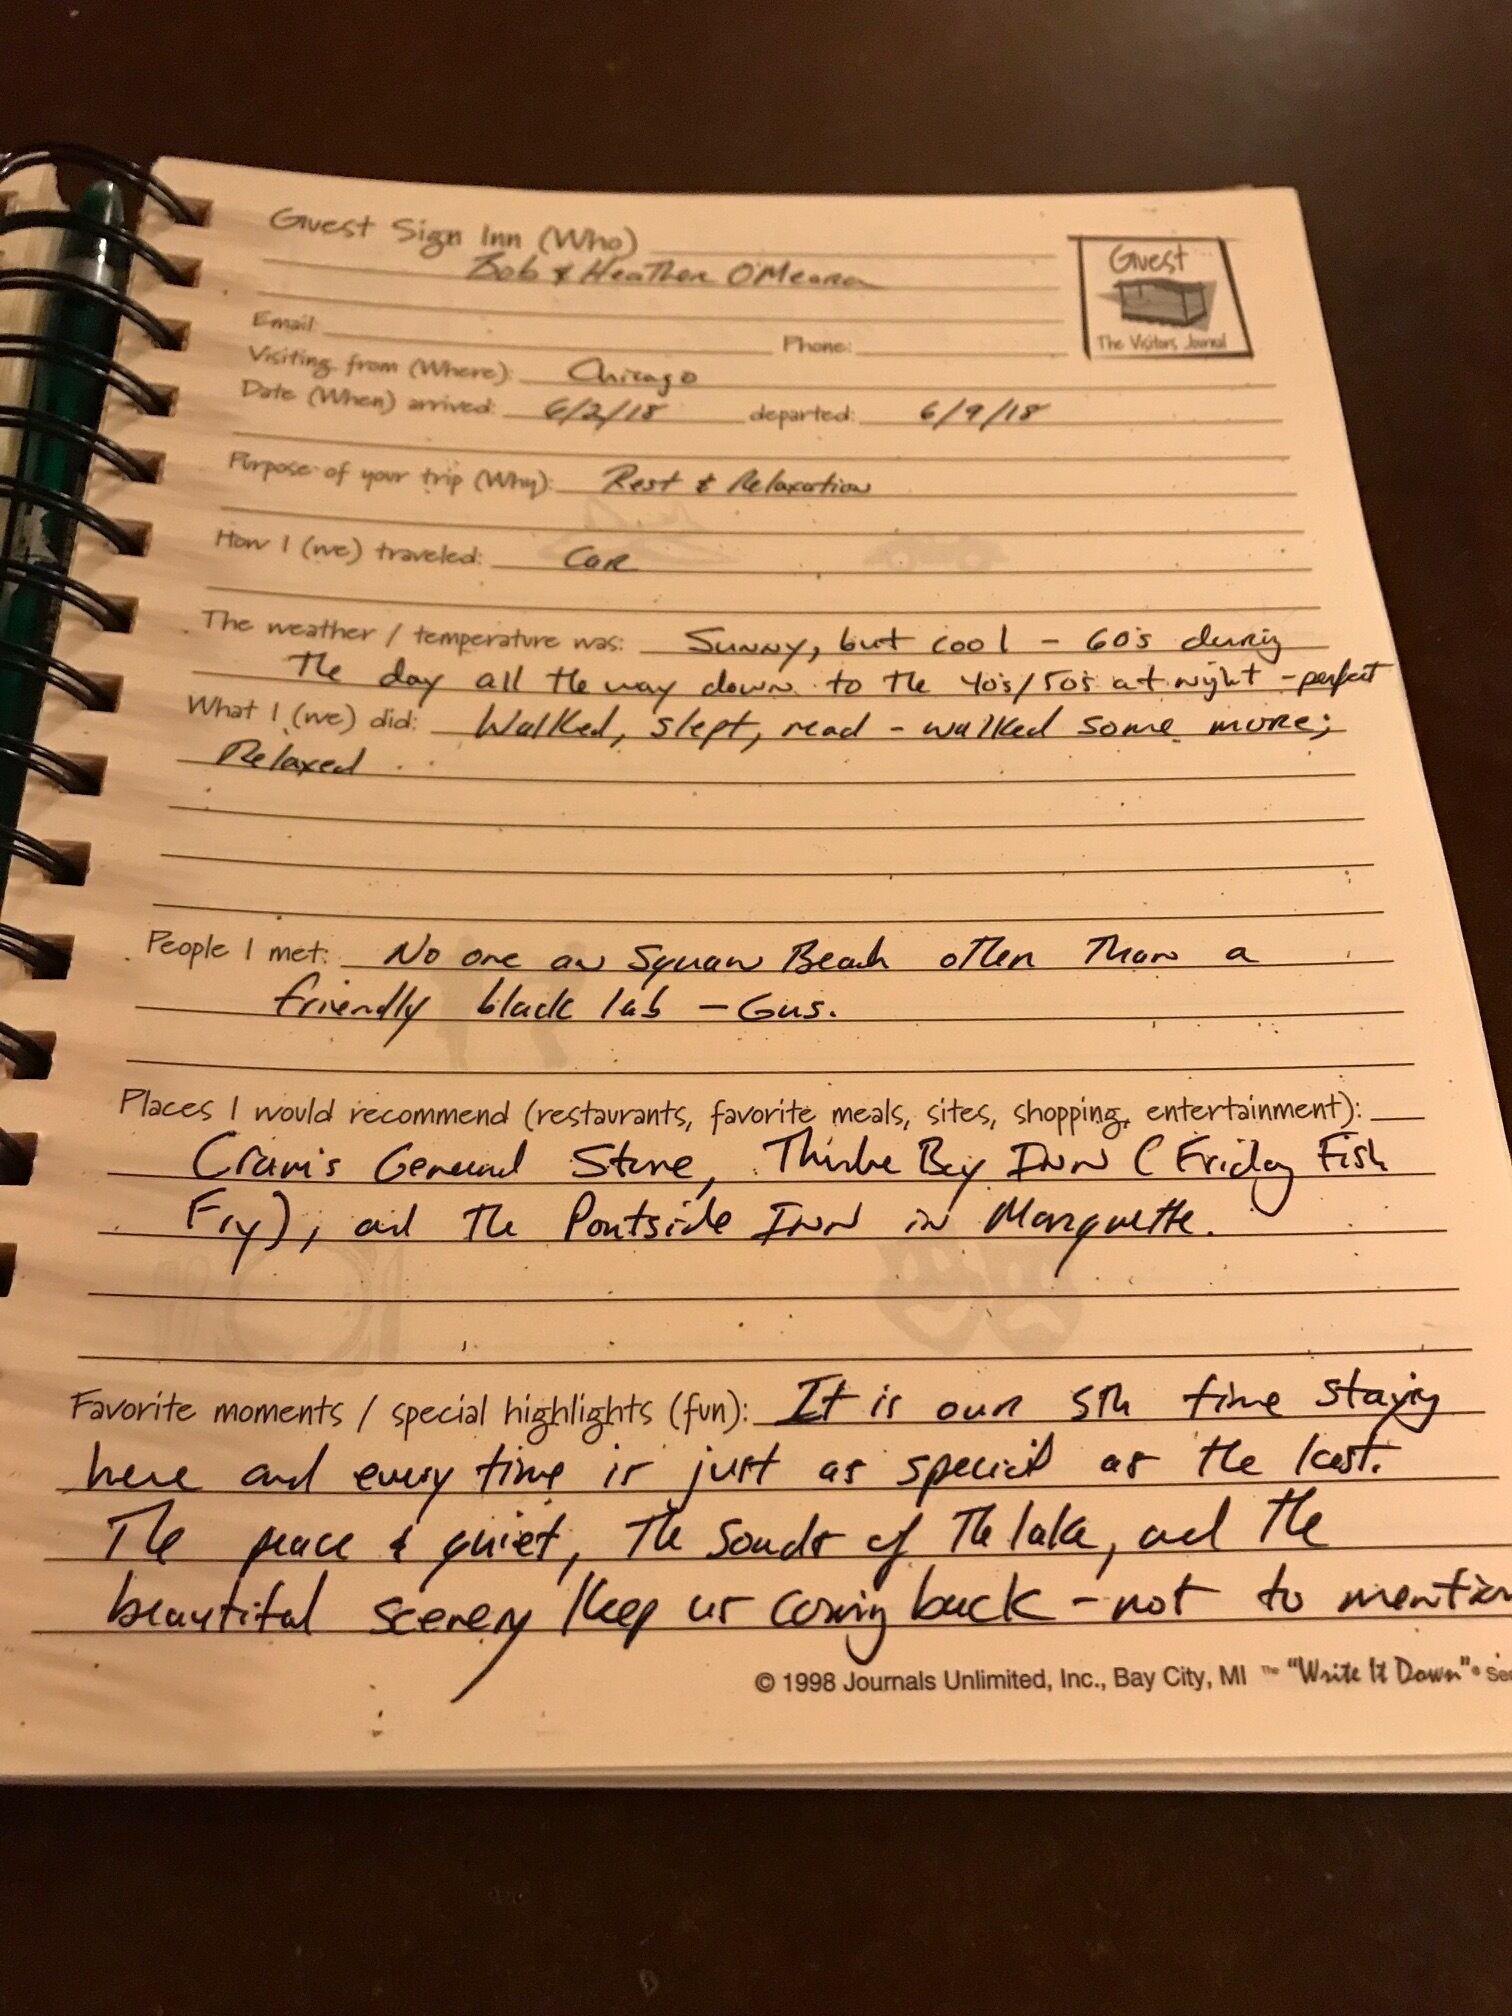 Guest Sign Inn (Who)
Bob & Heather O'Meara
Guest
The Visitors Journal
Email:
Phone:
Visiting from (Where): Chicago
Date (When) arrived: 6/2/18 departed: 6/9/18
Purpose of your trip (Why): Rest & Relaxation
How I (we) traveled: Car
The weather / temperature was: Sunny, but cool - 60's during
the day all the way down to the 40's/50's at night - perfect
What I (we) did: Walked, slept, read - walked some more;
Relaxed
People I met: No one on Squaw Beach other than a
friendly black lab - Gus.
Places I would recommend (restaurants, favorite meals, sites, shopping, entertainment):
Cram's General Store, Bay Inn (Friday Fish
Fry), and the Portside Inn in Marquette.
Favorite moments / special highlights (fun): It is our 5th time staying
here and every time is just as special as the last.
The peace & quiet, the sounds of the lake, and the
beautiful scenery keep us coming back - not to mention
© 1998 Journals Unlimited, Inc., Bay City, MI ™ "Write It Down"®